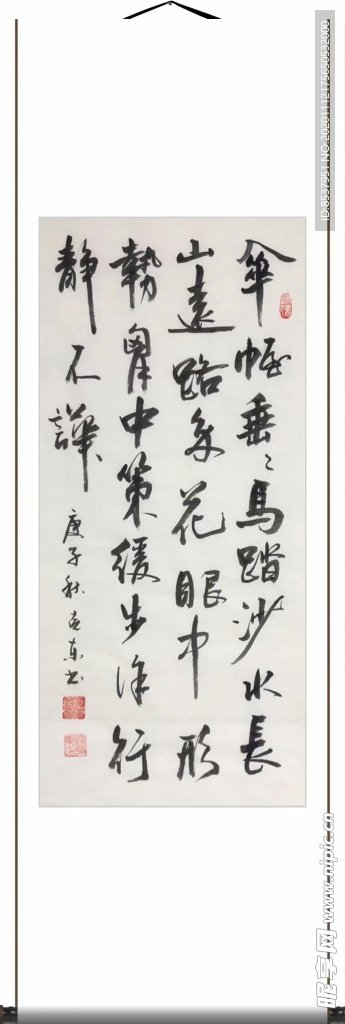 傘幄垂々馬踏沙水長
山遠路多花眼中形
勢胸中策緩步徐行
靜不譁
庚子秋克東书
ID:8537951 NO.20201112175650532000
昵享网 www.nipic.cn